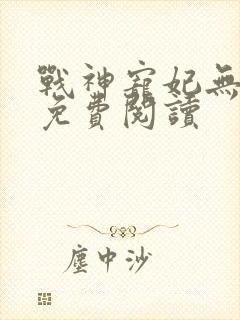 戰神寵妃無
免費閱讀
塵中沙